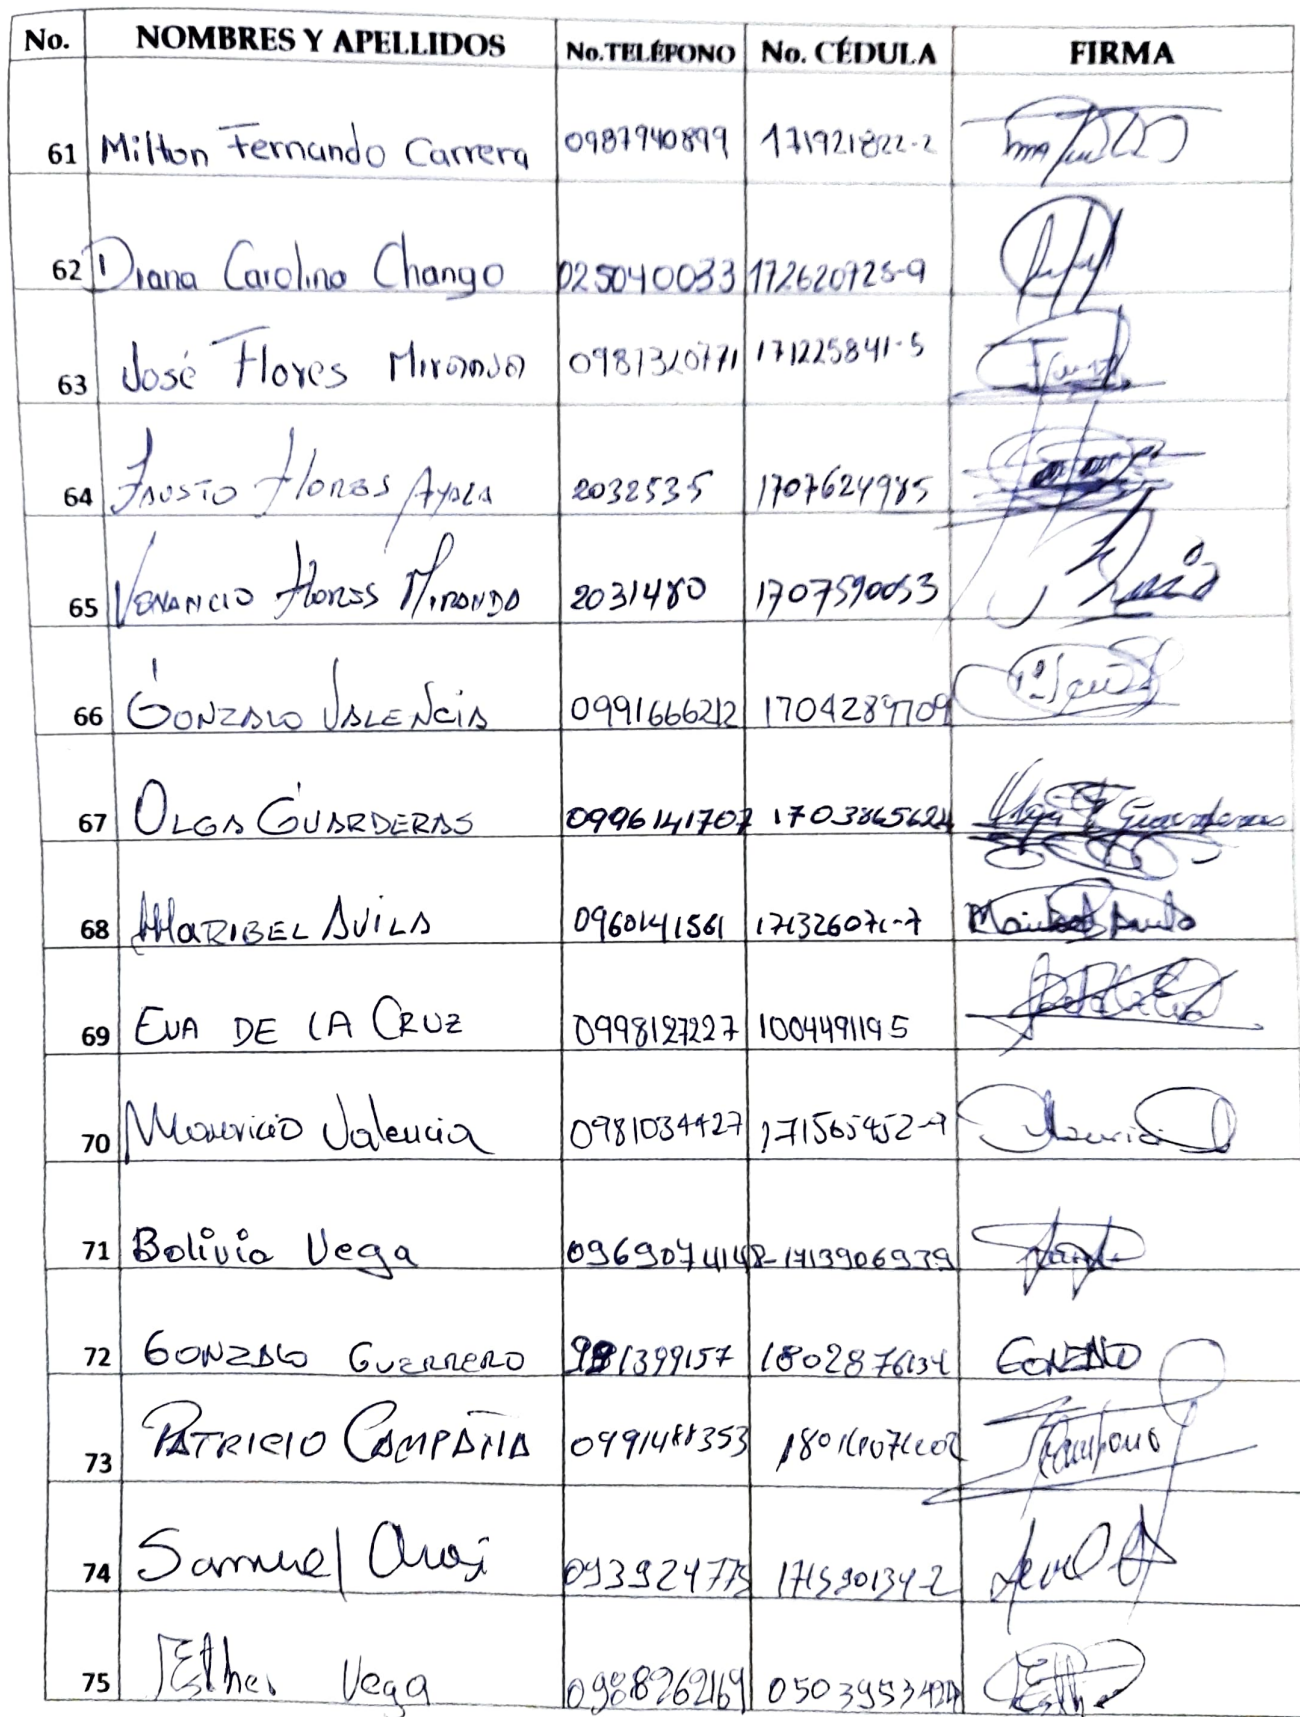 No. NOMBRES Y APELLIDOS No.TELÉFONO No. CÉDULA FIRMA
61 Milton Fernando Carrera 0987940899 171921822-2
62 Diana Carolina Chango 025040033 172620725-9
63 José Flores Miranda 0981320771 171225841-5
64 Fausto Flores Ayala 2032535 1707624985
65 Venancio Flores Miranda 2031480 1707590053
66 Gonzalo Valencia 0991666212 1704289709
67 Olga Guarderas 0996141707 Olga Guarderas
68 Maribel Avila 0960141561 171326071-7 Maribel Avila
69 Eva de la Cruz 0998127227 1004491195
70 Mauricio Valencia 0981034427 171565452-9 Mauricio
71 Bolivia Vega 0969074148 1713906939
72 Gonzalo Guerrero 981399157 1802876134 Gonzalo
73 Patricio Campaña 0991488353
74 Samuel 093924775 171590134-2
75 Esther Vega 0988262169 Esther